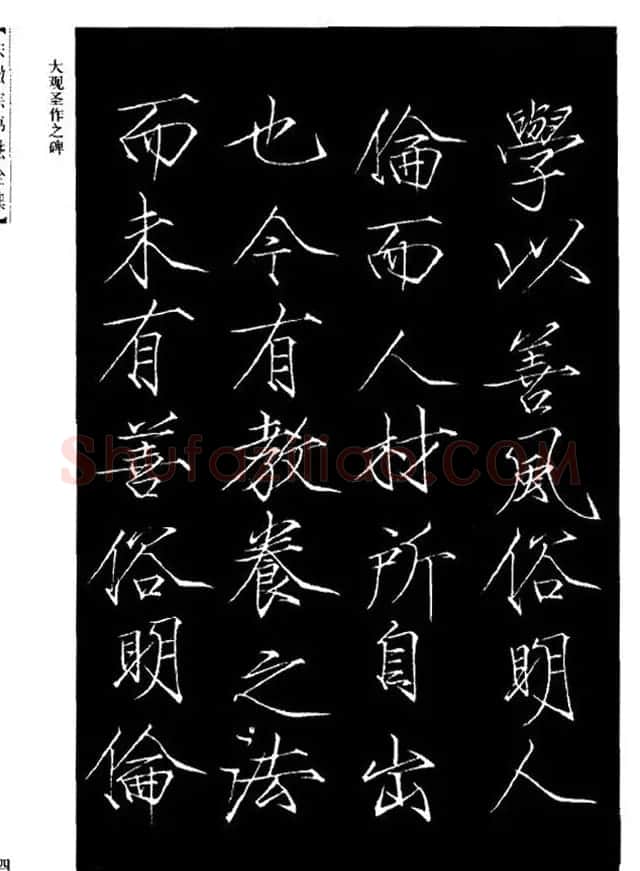 學以善風俗明人
倫而人材所自出
也今有教養之法
而未有善俗明倫
大观圣作之碑
Shufaziliao.COM
四